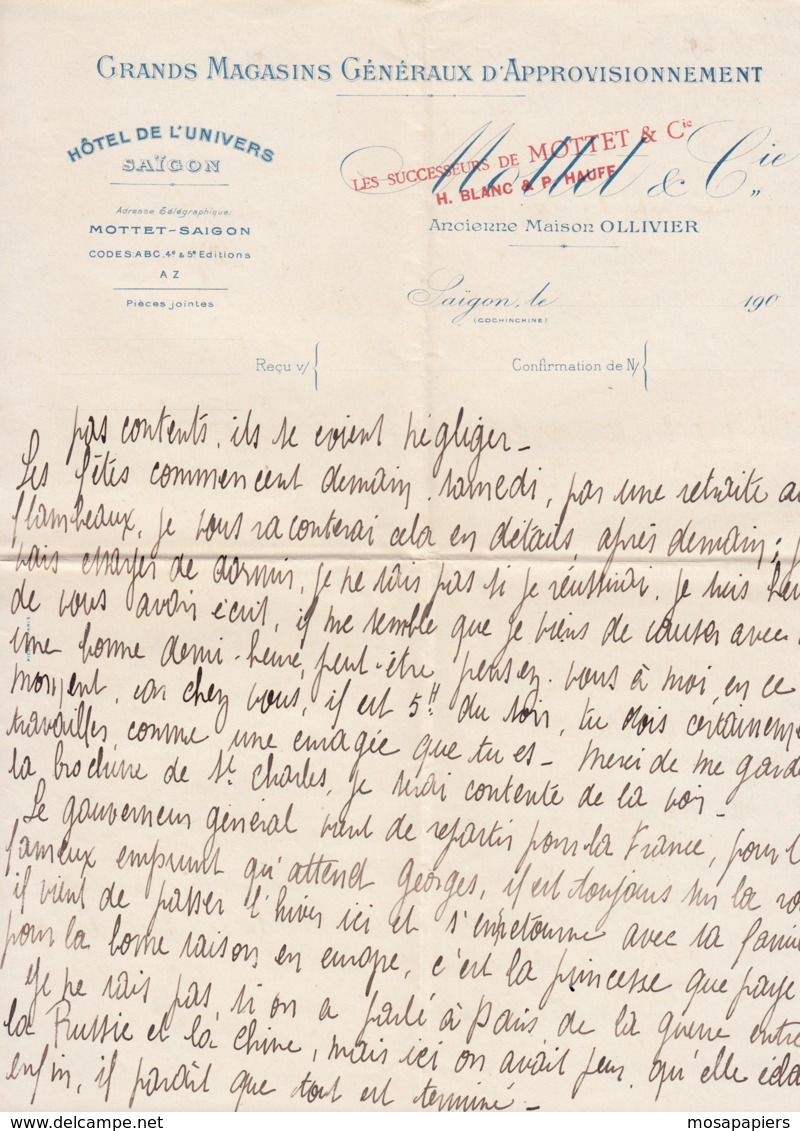 GRANDS MAGASINS GÉNÉRAUX D'APPROVISIONNEMENT
HÔTEL DE L'UNIVERS
SAÏGON
Adresse Télégraphique:
MOTTET-SAIGON
CODES: ABC. 4e & 5e Editions
A Z
Pièces jointes
Mottet & Cie
LES SUCCESSEURS DE MOTTET & Cie
H. BLANC & P. HAUFF
Ancienne Maison OLLIVIER
Saïgon, le 190
(COCHINCHINE)
Reçu v/
Confirmation de N/
pas contents, ils se croient négliger_
Les fêtes commencent demain, samedi, par une retraite au
flambeaux, je vous raconterai cela en détails, après demain; j
vais essayer de dormir, je ne sais pas si je réussirai, je suis heu
de vous avoir écrit, il me semble que je viens de causer avec
une bonne demi-heure, peut-être, pensez-vous à moi, en ce
moment, car chez vous, il est 5H du soir, tu dois certaineme
travailler, comme une enragée que tu es_ Merci de me gard
la brochure de St Charles, je serai contente de la voir_
Le gouverneur général vient de repartir pour la France, pour l
fameux emprunt qu'attend Georges, il est toujours sur la ro
il vient de passer l'hiver ici et s'en retourne avec sa fami
pour la bonne saison en europe, c'est la princesse que paye
Je ne sais pas, si on a parlé à Paris, de la guerre entre
la Russie et la Chine, mais ici on avait peur, qu'elle écla
enfin, il parait que tout est terminé_
mosapapiers.com